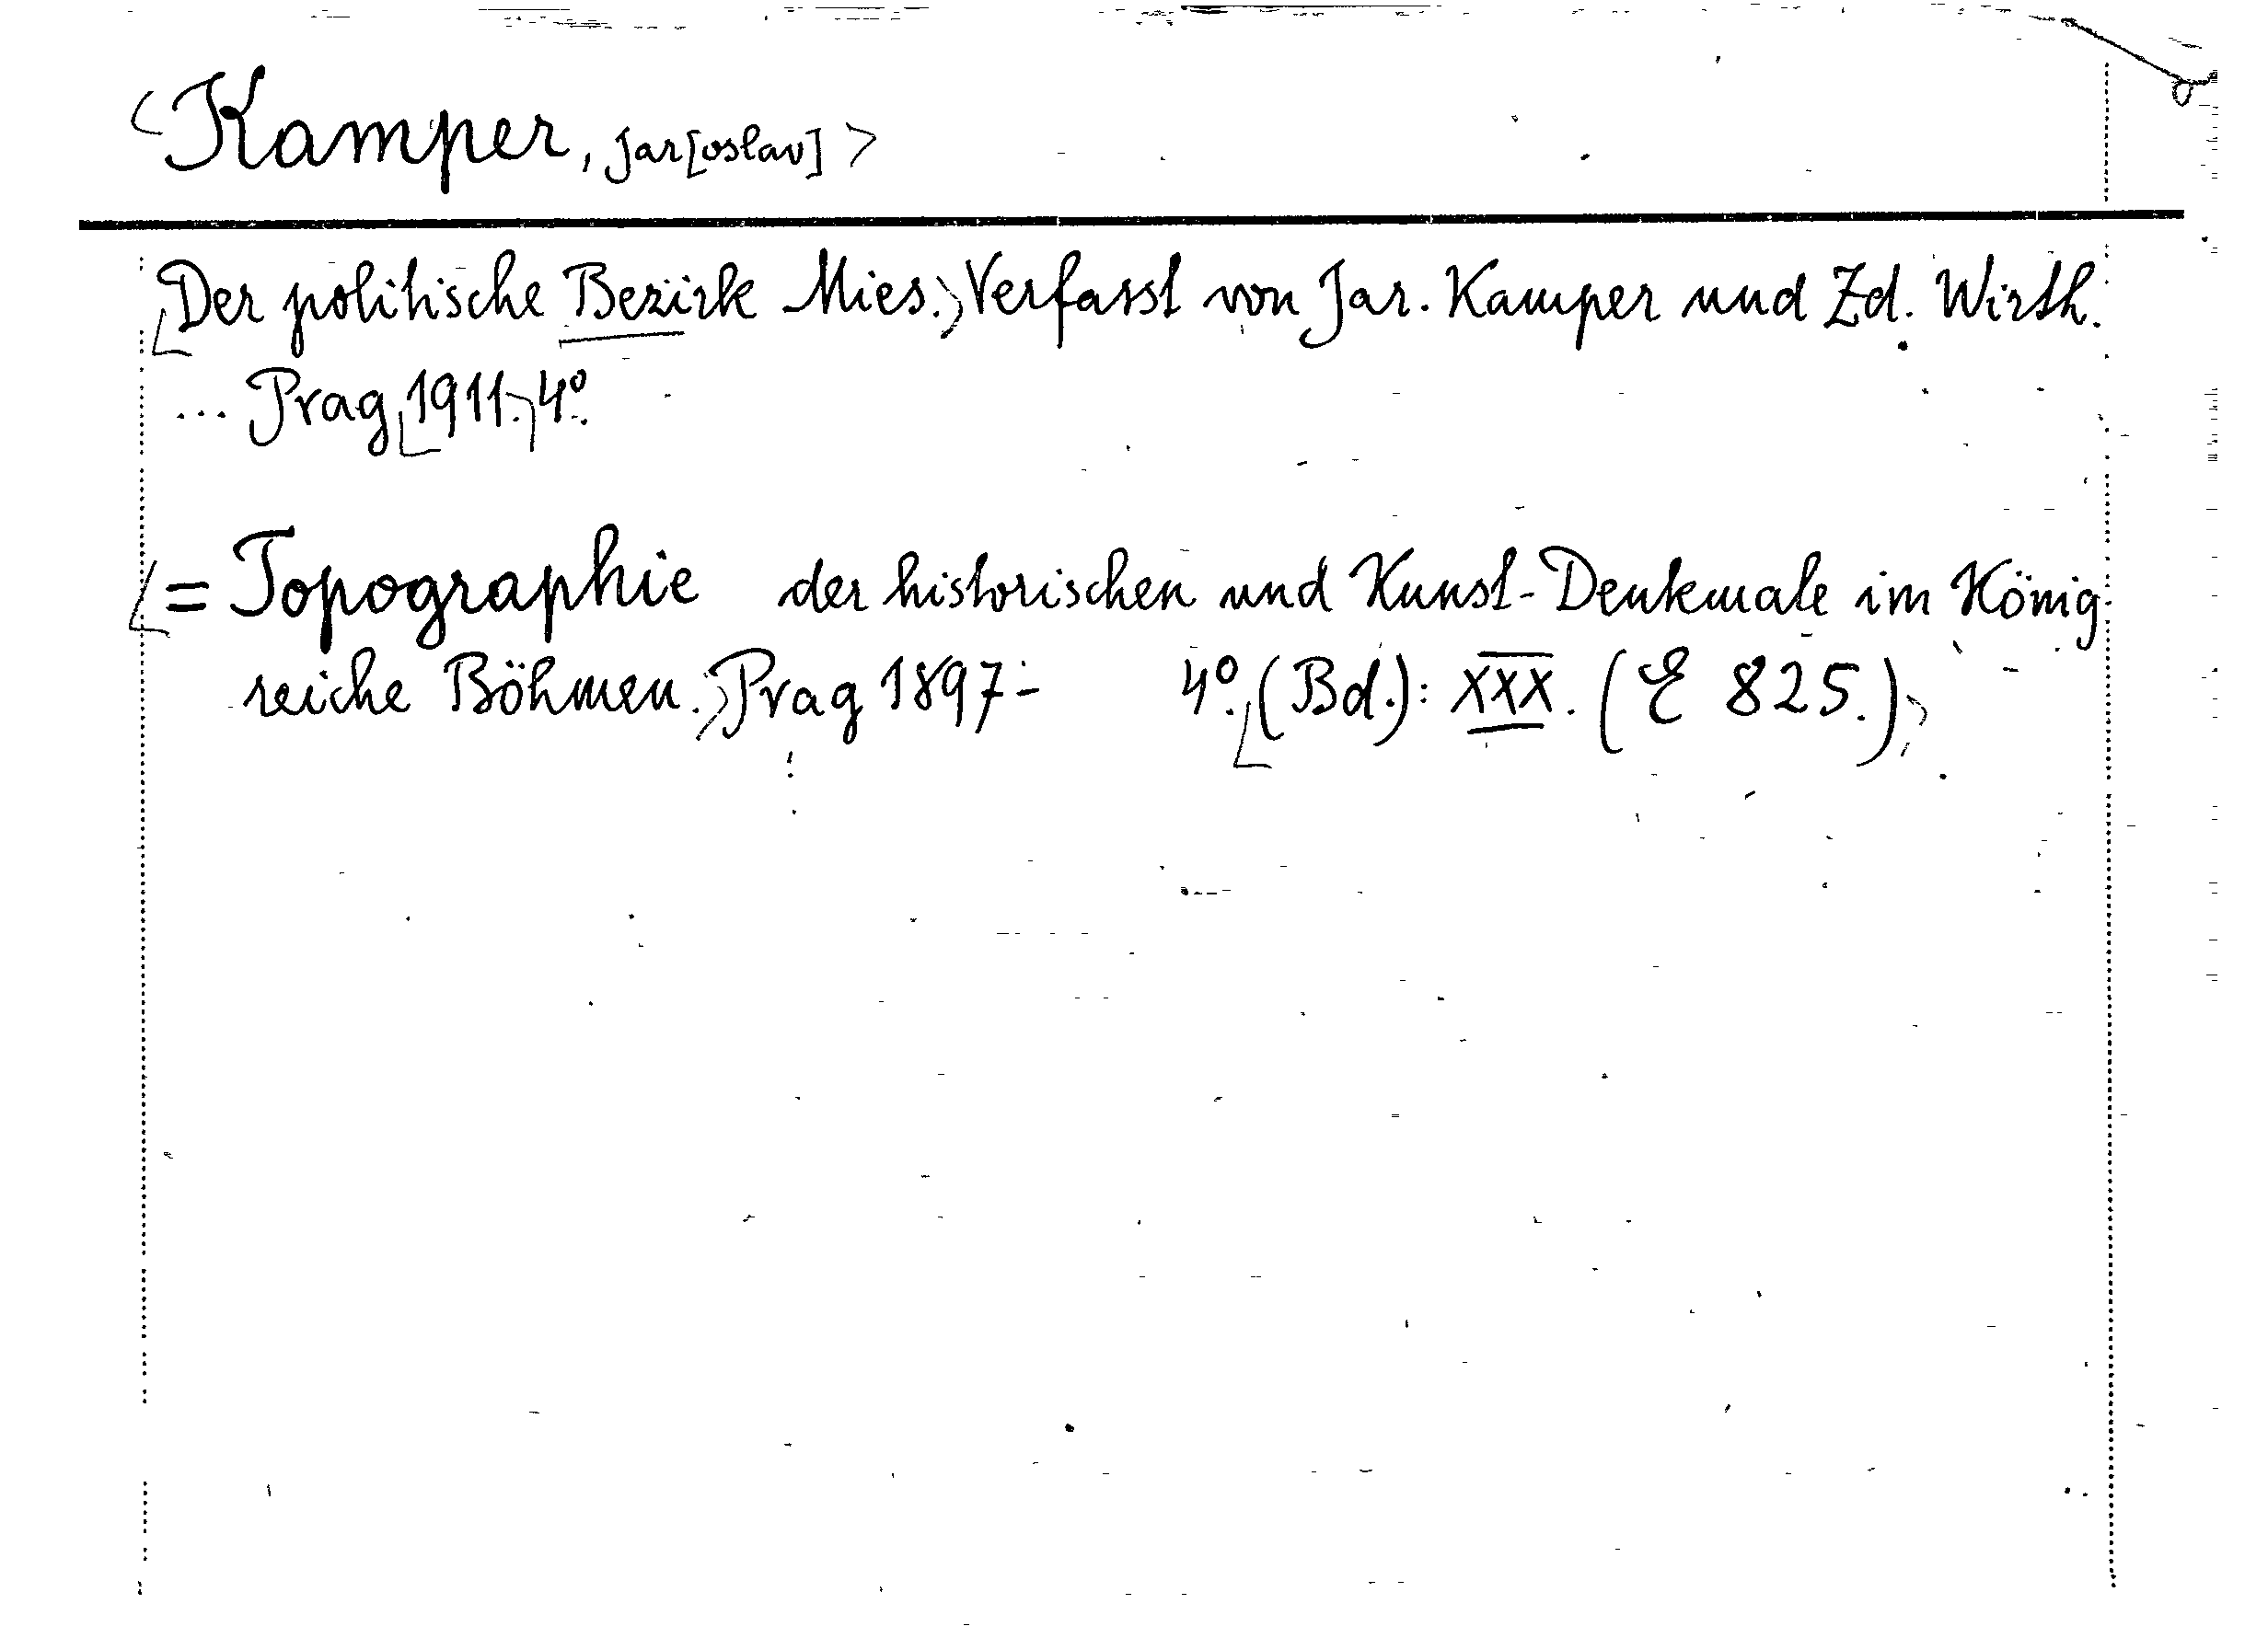 <Kamper, Jar[oslav]>
Der politische Bezirk Mies. Verfasst von Jar. Kamper und Zd. Wirth.
... Prag 1911. 4°.
= Topographie der historischen und Kunst-Denkmale im König-
reiche Böhmen. Prag 1897- 4°. (Bd.): XXX. (E 825.)